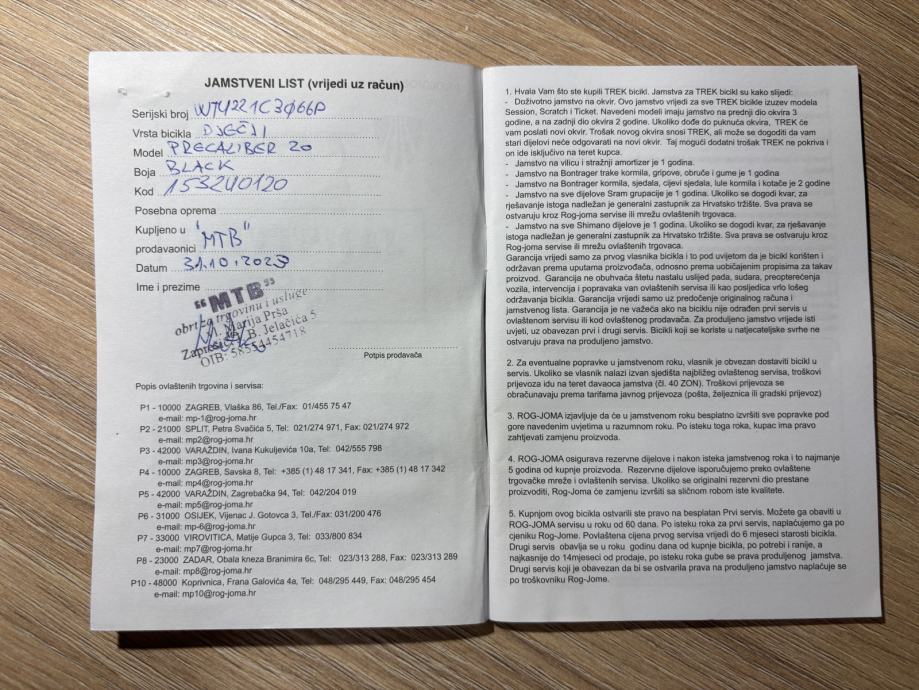 JAMSTVENI LIST (vrijedi uz račun)
Serijski broj WTU221C3066P
Vrsta bicikla DJEČJI
Model PRECALIBER 20
Boja BLACK
Kod 153240120
Posebna oprema
Kupljeno u
prodavaonici "MTB"
Datum 31.10.2023
Ime i prezime
"MTB"
obrt za trgovinu i usluge
Marija Prša
Zaprešić, B. Jelačića 5
OIB: 58554454718
Potpis prodavača
Popis ovlaštenih trgovina i servisa:
P1 - 10000 ZAGREB, Vlaška 86, Tel./Fax: 01/455 75 47
e-mail: mp-1@rog-joma.hr
P2 - 21000 SPLIT, Petra Svačića 5, Tel: 021/274 971, Fax: 021/274 972
e-mail: mp2@rog-joma.hr
P3 - 42000 VARAŽDIN, Ivana Kukuljevića 10a, Tel: 042/555 798
e-mail: mp3@rog-joma.hr
P4 - 10000 ZAGREB, Savska 8, Tel: +385 (1) 48 17 341, Fax: +385 (1) 48 17 342
e-mail: mp4@rog-joma.hr
P5 - 42000 VARAŽDIN, Zagrebačka 94, Tel: 042/204 019
e-mail: mp5@rog-joma.hr
P6 - 31000 OSIJEK, Vijenac J. Gotovca 3, Tel./Fax: 031/200 476
e-mail: mp-6@rog-joma.hr
P7 - 33000 VIROVITICA, Matije Gupca 3, Tel: 033/800 834
e-mail: mp7@rog-joma.hr
P8 - 23000 ZADAR, Obala kneza Branimira 6c, Tel: 023/313 288, Fax: 023/313 289
e-mail: mp8@rog-joma.hr
P10 - 48000 Koprivnica, Frana Galovića 4a, Tel: 048/295 449, Fax: 048/295 454
e-mail: mp10@rog-joma.hr
1. Hvala Vam što ste kupili TREK bicikl. Jamstva za TREK bicikl su kako slijedi:
- Doživotno jamstvo na okvir. Ovo jamstvo vrijedi za sve TREK bicikle izuzev modela
Session, Scratch i Ticket. Navedeni modeli imaju jamstvo na prednji dio okvira 3
godine, a na zadnji dio okvira 2 godine. Ukoliko dođe do puknuća okvira, TREK će
vam poslati novi okvir. Trošak novog okvira snosi TREK, ali može se dogoditi da vam
stari dijelovi neće odgovarati na novi okvir. Taj mogući dodatni trošak TREK ne pokriva i
on ide isključivo na teret kupca.
- Jamstvo na vilicu i stražnji amortizer je 1 godina.
- Jamstvo na Bontrager trake kormila, gripove, obruče i gume je 1 godina
- Jamstvo na Bontrager kormila, sjedala, cijevi sjedala, lule kormila i kotače je 2 godine
- Jamstvo na sve dijelove Sram grupacije je 1 godina. Ukoliko se dogodi kvar, za
rješavanje istoga nadležan je generalni zastupnik za Hrvatsko tržište. Sva prava se
ostvaruju kroz Rog-joma servise ili mrežu ovlaštenih trgovaca.
- Jamstvo na sve Shimano dijelove je 1 godina. Ukoliko se dogodi kvar, za rješavanje
istoga nadležan je generalni zastupnik za Hrvatsko tržište. Sva prava se ostvaruju kroz
Rog-joma servise ili mrežu ovlaštenih trgovaca.
Garancija vrijedi samo za prvog vlasnika bicikla i to pod uvijetom da je bicikl korišten i
održavan prema uputama proizvođača, odnosno prema uobičajenim propisima za takav
proizvod. Garancija ne obuhvaća štetu nastalu uslijed pada, sudara, preopterećenja
vozila, intervencija i popravaka van ovlaštenih servisa ili kao posljedica vrlo lošeg
održavanja bicikla. Garancija vrijedi samo uz predočenje originalnog računa i
jamstvenog lista. Garancija je ne važeća ako na biciklu nije odrađen prvi servis u
ovlaštenom servisu ili kod ovlaštenog prodavača. Za produljeno jamstvo vrijede isti
uvjeti, uz obavezan prvi i drugi servis. Bicikli koji se koriste u natjecateljske svrhe ne
ostvaruju pravo na produljeno jamstvo.
2. Za eventualne popravke u jamstvenom roku, vlasnik je obvezan dostaviti bicikl u
servis. Ukoliko se vlasnik nalazi izvan sjedišta najbližeg ovlaštenog servisa, troškovi
prijevoza idu na teret davaoca jamstva (čl. 40 ZON). Troškovi prijevoza se
obračunavaju prema tarifama javnog prijevoza (pošta, željeznica ili gradski prijevoz)
3. ROG-JOMA izjavljuje da će u jamstvenom roku besplatno izvršiti sve popravke pod
gore navedenim uvjetima u razumnom roku. Po isteku toga roka, kupac ima pravo
zahtjevati zamjenu proizvoda.
4. ROG-JOMA osigurava rezervne dijelove i nakon isteka jamstvenog roka i to najmanje
5 godina od kupnje proizvoda. Rezervne dijelove isporučujemo preko ovlaštene
trgovačke mreže i ovlaštenih servisa. Ukoliko se originalni rezervni dio prestane
proizvoditi, Rog-Joma će zamjenu izvršiti sa sličnom robom iste kvalitete.
5. Kupnjom ovog bicikla ostvarili ste pravo na besplatan Prvi servis. Možete ga obaviti u
ROG-JOMA servisu u roku od 60 dana. Po isteku roka za prvi servis, naplaćujemo ga po
cjeniku Rog-Jome. Povlaštena cijena prvog servisa vrijedi do 6 mjeseci starosti bicikla.
Drugi servis obavlja se u roku godinu dana od kupnje bicikla, po potrebi i ranije, a
najkasnije do 14mjeseci od prodaje, po isteku roka gube se prava produljenog jamstva.
Drugi servis koji je obavezan da bi se ostvarila prava na produljeno jamstvo naplaćuje se
po troškovniku Rog-Jome.